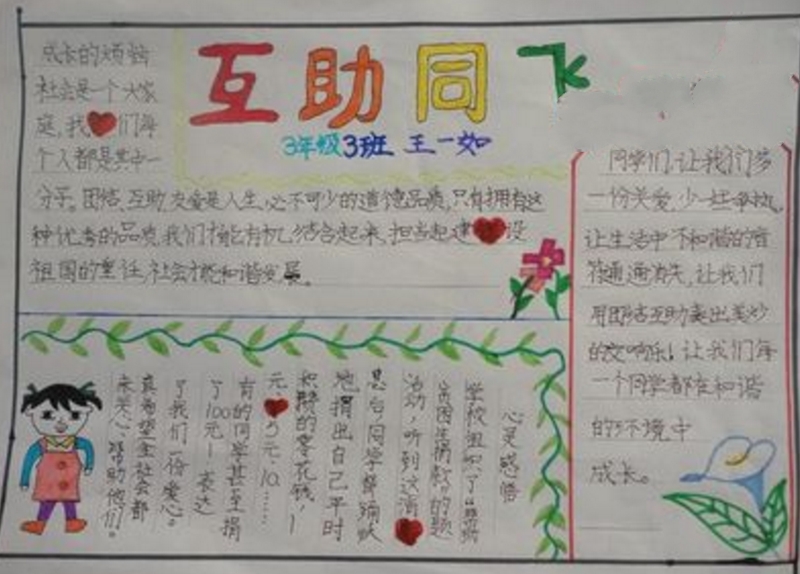 互助同飞
3年级3班 王一如
成长的烦恼
社会是一个大家
庭,我们每
个人都是其中一
分子。团结、互助、友爱是人生必不可少的道德品质,只有拥有这
种优秀的品质,我们才能有机结合起来,担当起建设
祖国的重任,社会才能和谐发展。
同学们,让我们多
一份关爱,少一些争执,
让生活中不和谐的音
符通通消失,让我们
用团结互助奏出美妙
的交响乐!让我们每
一个同学都在和谐
的环境中
成长。
心灵感悟
学校组织了"帮助
贫困生捐款"的
活动,听到这消
息后,同学们踊跃
地捐出自己平时
积攒的零花钱,1
元、5元、10……
有的同学甚至捐
了100元!表达
了我们一份爱心。
真希望全社会都
来关心、帮助他们。